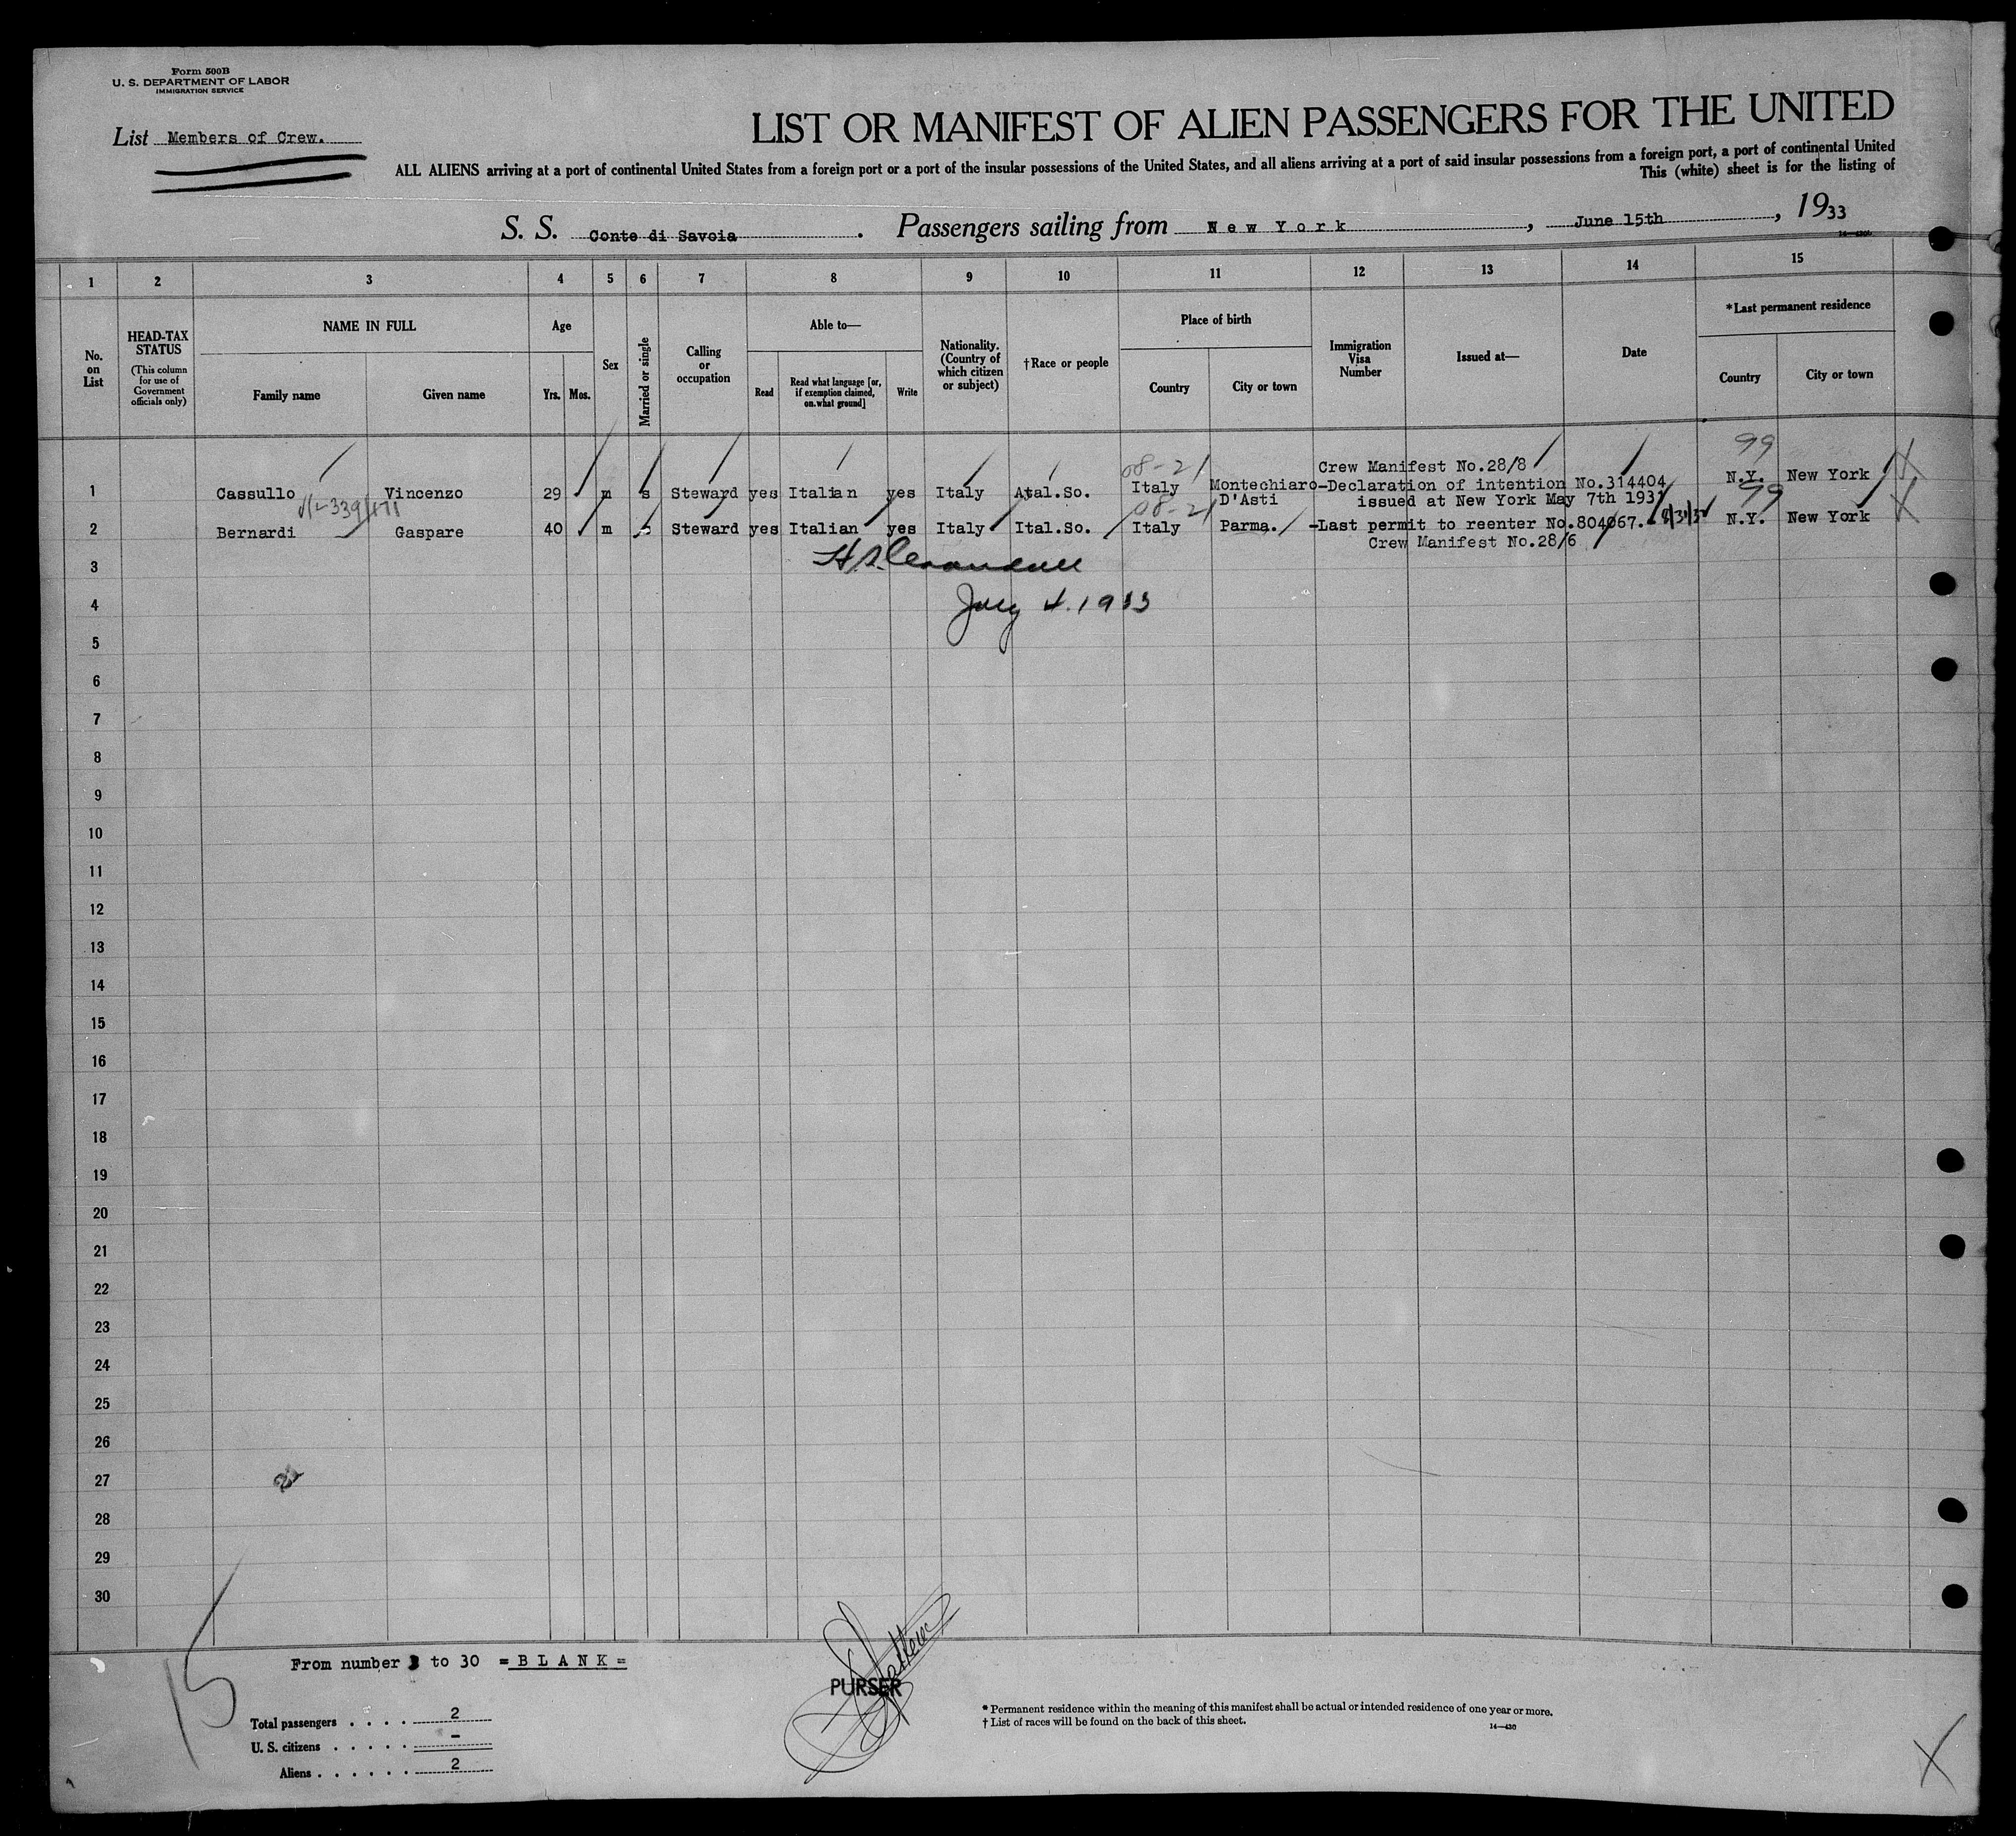 Form 500B
U. S. DEPARTMENT OF LABOR
IMMIGRATION SERVICE
List Members of Crew.
LIST OR MANIFEST OF ALIEN PASSENGERS FOR THE UNITED
ALL ALIENS arriving at a port of continental United States from a foreign port or a port of the insular possessions of the United States, and all aliens arriving at a port of said insular possessions from a foreign port, a port of continental United
This (white) sheet is for the listing of
S. S. Conte di Savoia. Passengers sailing from New York, June 15th, 1933
1 2 3 4 5 6 7 8 9 10 11 12 13 14 15
No. on List
HEAD-TAX STATUS
(This column for use of Government officials only)
NAME IN FULL
Family name
Given name
Age
Yrs.
Mos.
Sex
Married or single
Calling or occupation
Able to—
Read
Read what language [or, if exemption claimed, on what ground]
Write
Nationality. (Country of which citizen or subject)
†Race or people
Place of birth
Country
City or town
Immigration Visa Number
Issued at—
Date
*Last permanent residence
Country
City or town
99
08-21
Crew Manifest No.28/8
1 Cassullo Vincenzo 29 m s Steward yes Italian yes Italy Ital.So. Italy Montechiaro D'Asti -Declaration of intention No.314404 N.Y. New York
issued at New York May 7th 1931
08-21
99
2 Bernardi Gaspare 40 m s Steward yes Italian yes Italy Ital.So. Italy Parma. -Last permit to reenter No.804067.- N.Y. New York
Crew Manifest No.28/6
3
4 July 4. 1933
5
6
7
8
9
10
11
12
13
14
15
16
17
18
19
20
21
22
23
24
25
26
27
28
29
30
From number 3 to 30 =BLANK=
15
PURSER
Total passengers . . . . 2
U. S. citizens . . . . . -
Aliens . . . . . . 2
* Permanent residence within the meaning of this manifest shall be actual or intended residence of one year or more.
† List of races will be found on the back of this sheet.
14—430
X